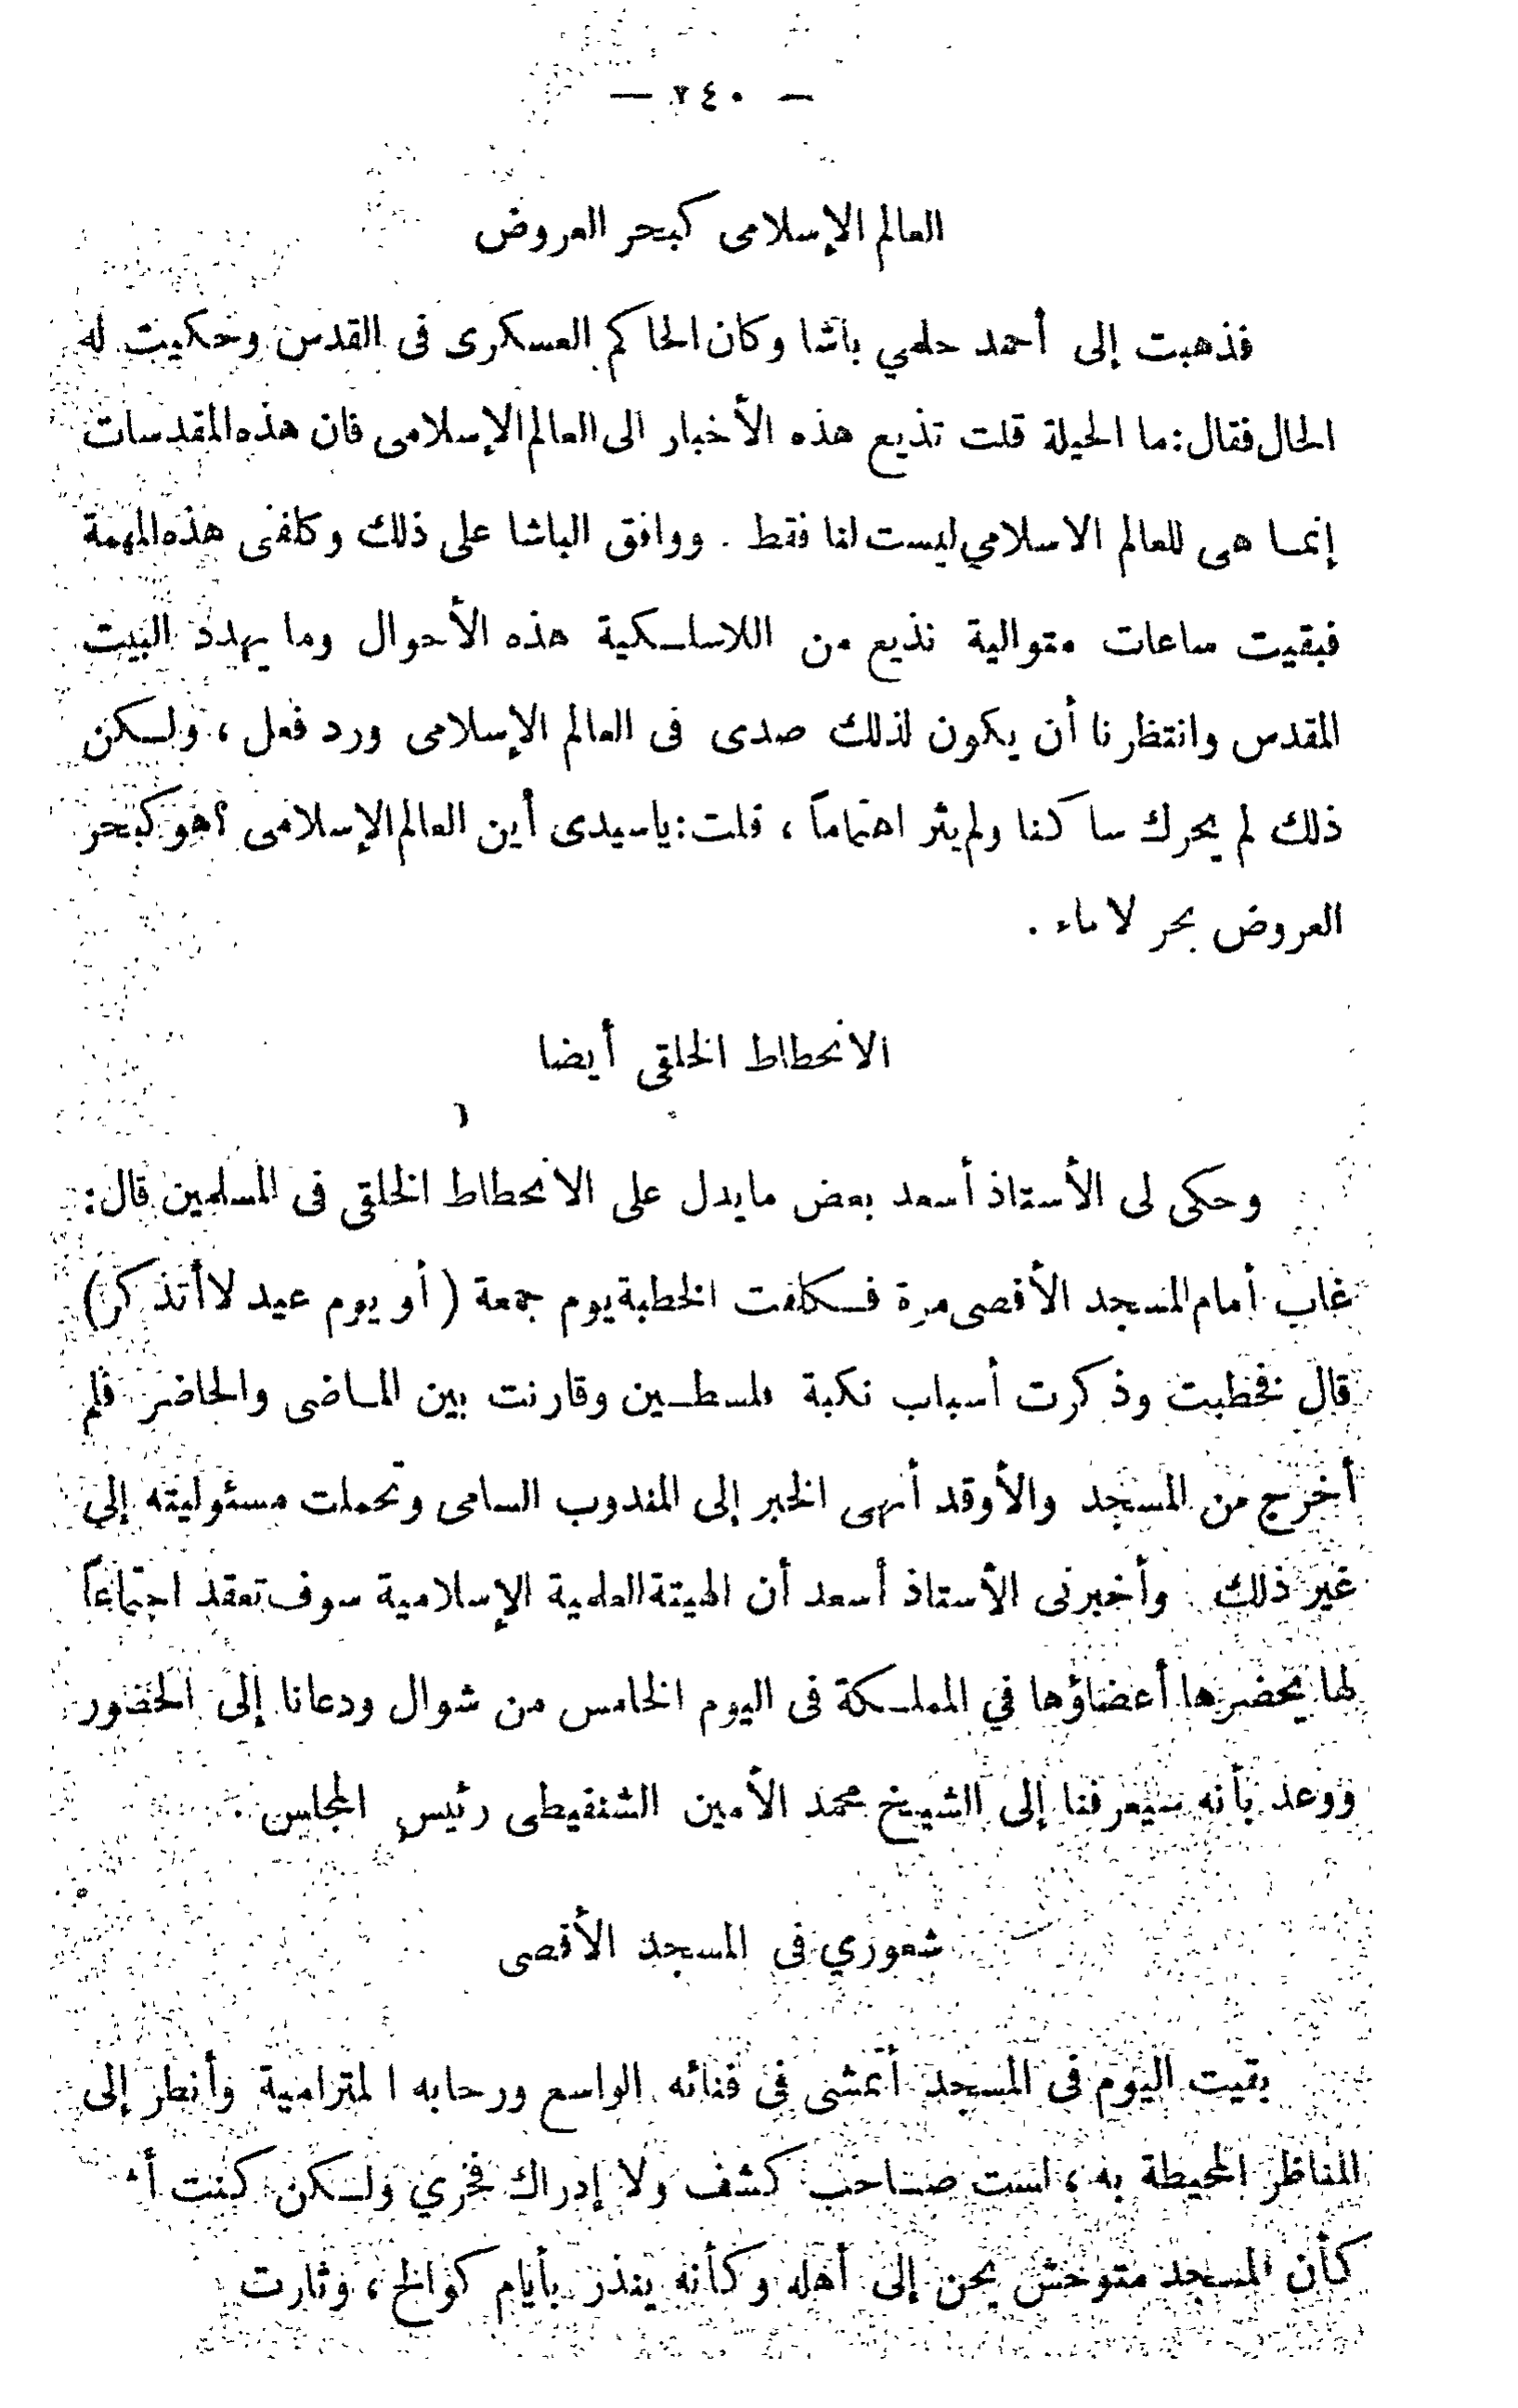 — ٢٤٠ —
العالم الإسلامى كبحر العروض
فذهبت إلى أحمد حلمي باشا وكان الحاكم العسكرى فى القدس وحكيت له
الحال فقال: ما الحيلة قلت نذيع هذه الأخبار الى العالم الإسلامى فان هذه المقدسات
إنما هى للعالم الاسلامي ليست لنا فقط . ووافق الباشا على ذلك وكلفنى هذه المهمة
فبقيت ساعات متوالية نذيع من اللاسلكية هذه الأحوال وما يهدد البيت
المقدس وانتظرنا أن يكون لذلك صدى فى العالم الإسلامى ورد فعل ، ولكن
ذلك لم يحرك ساكنا ولم يثر اهتماماً ، قلت: ياسيدى أين العالم الإسلامى ؟ هو كبحر
العروض بحر لا ماء .
الانحطاط الخلقى أيضا
وحكى لى الأستاذ أسعد بعض مايدل على الانحطاط الخلقى فى المسلمين قال:
غاب أمام المسجد الأقصى مرة فكلفت الخطبة يوم جمعة ( أو يوم عيد لا أتذكر)
قال فخطبت وذكرت أسباب نكبة فلسطين وقارنت بين الماضى والحاضر فلم
أخرج من المسجد والأوقد أنهى الخبر إلى المندوب السامى وتحملت مسئوليته إلى
غير ذلك . وأخبرنى الأستاذ أسعد أن الهيئة العلمية الإسلامية سوف تعقد اجتماعاً
لها يحضرها أعضاؤها في المملكة فى اليوم الخامس من شوال ودعانا إلى الحضور
ووعد بأنه سيعرفنا إلى الشيخ محمد الأمين الشنقيطى رئيس المجلس .
شعوري فى المسجد الأقصى
بقيت اليوم فى المسجد أتمشى فى فنائه الواسع ورحابه المترامية وأنظر إلى
المناظر المحيطة به ، لست صاحب كشف ولا إدراك فخري ولكن كنت
كأن المسجد متوحش يحن إلى أهله وكأنه ينذر بأيام كوالح ، وثارت